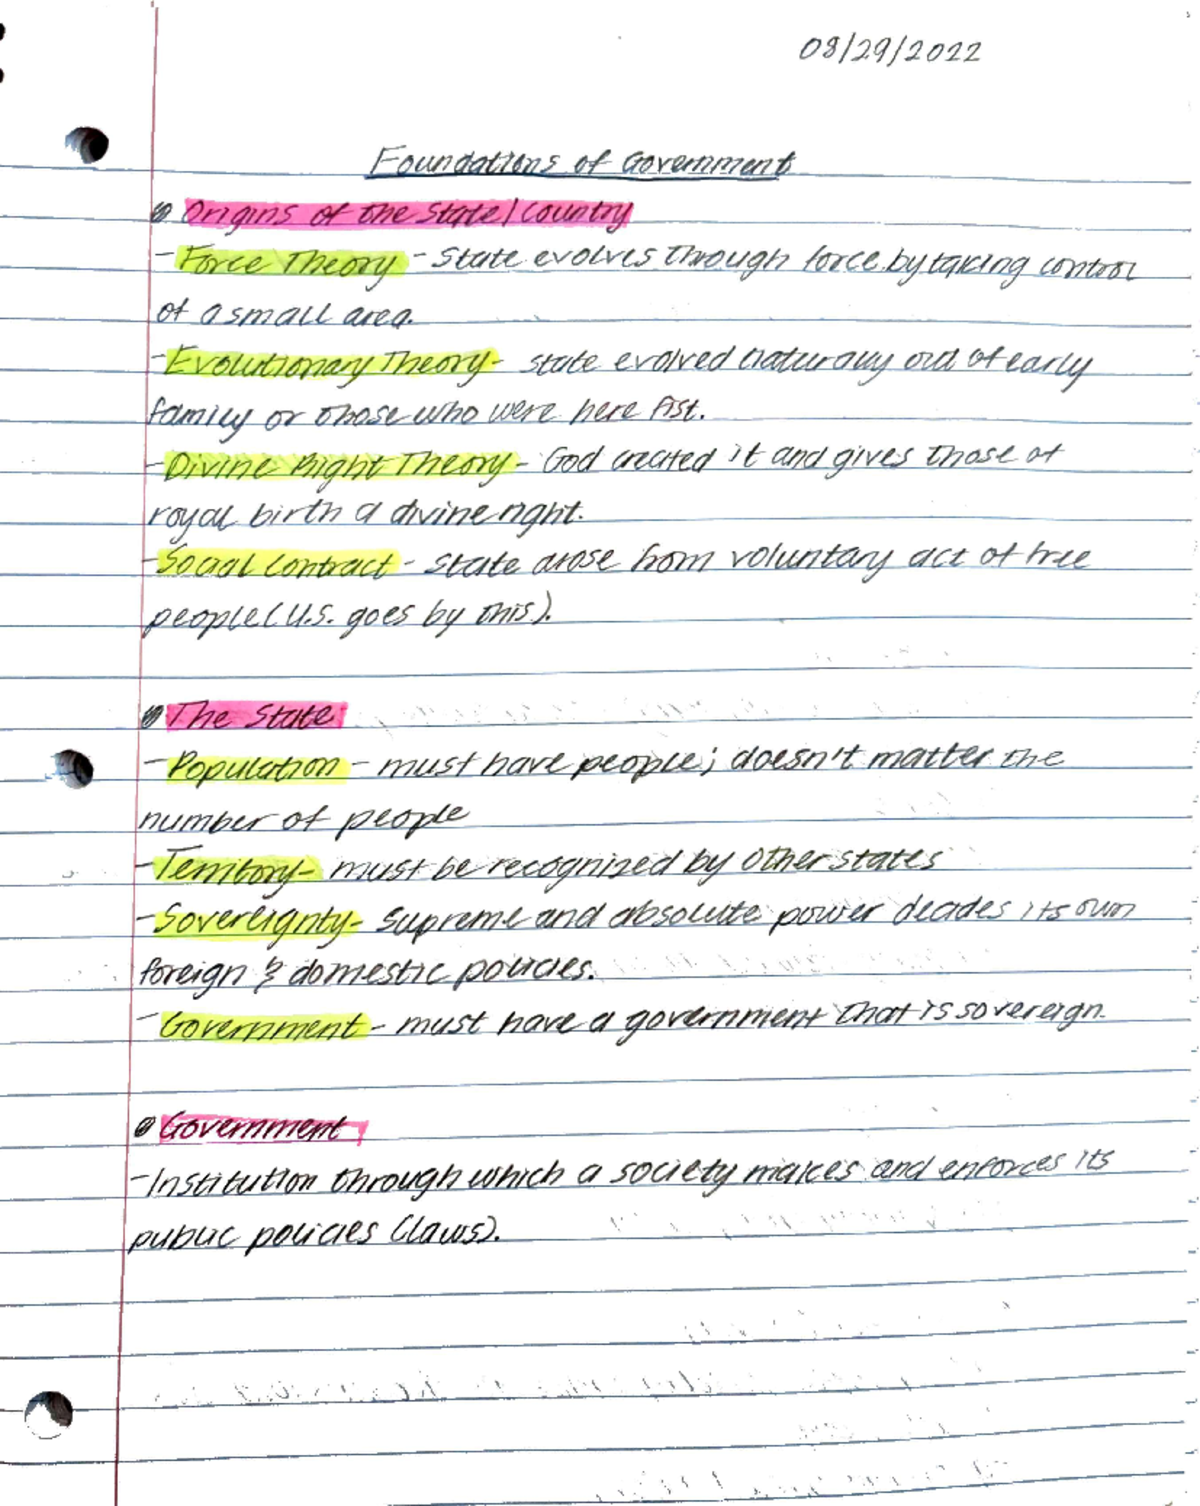 08/29/2022
Foundations of Government
Origins of the State/Country
- Force Theory - State evolves through force by taking control
of a small area.
- Evolutionary Theory - State evolved naturally out of early
family or those who were here fist.
- Divine Right Theory - God created it and gives those of
royal birth a divine right.
- Social Contract - State arose from voluntary act of free
people (U.S. goes by this).
The State
- Population - must have people; doesn't matter the
number of people
- Territory - must be recognized by other states
- Sovereignty - Supreme and absolute power decides its own
foreign & domestic policies.
- Government - must have a government that is sovereign.
Government
- Institution through which a society makes and enforces its
public policies (laws).